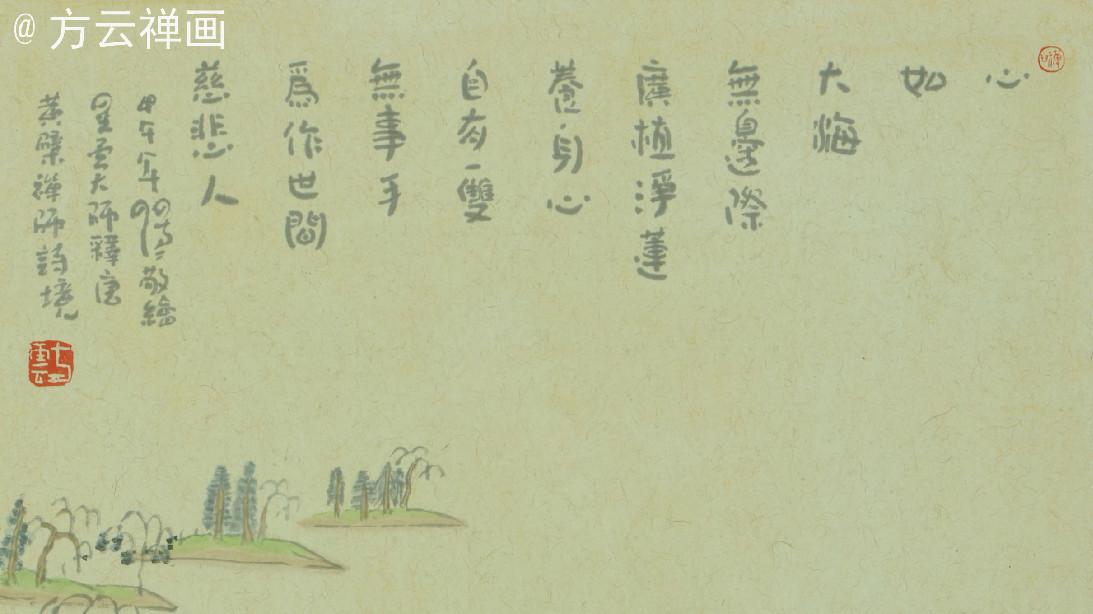 @方云禅画
心
如
大海
無邊際
廣植淨蓮
養身心
自有一雙
無事手
爲作世間
慈悲人
甲午年敬繪
星雲大師釋唐
黃檗禪師詩境